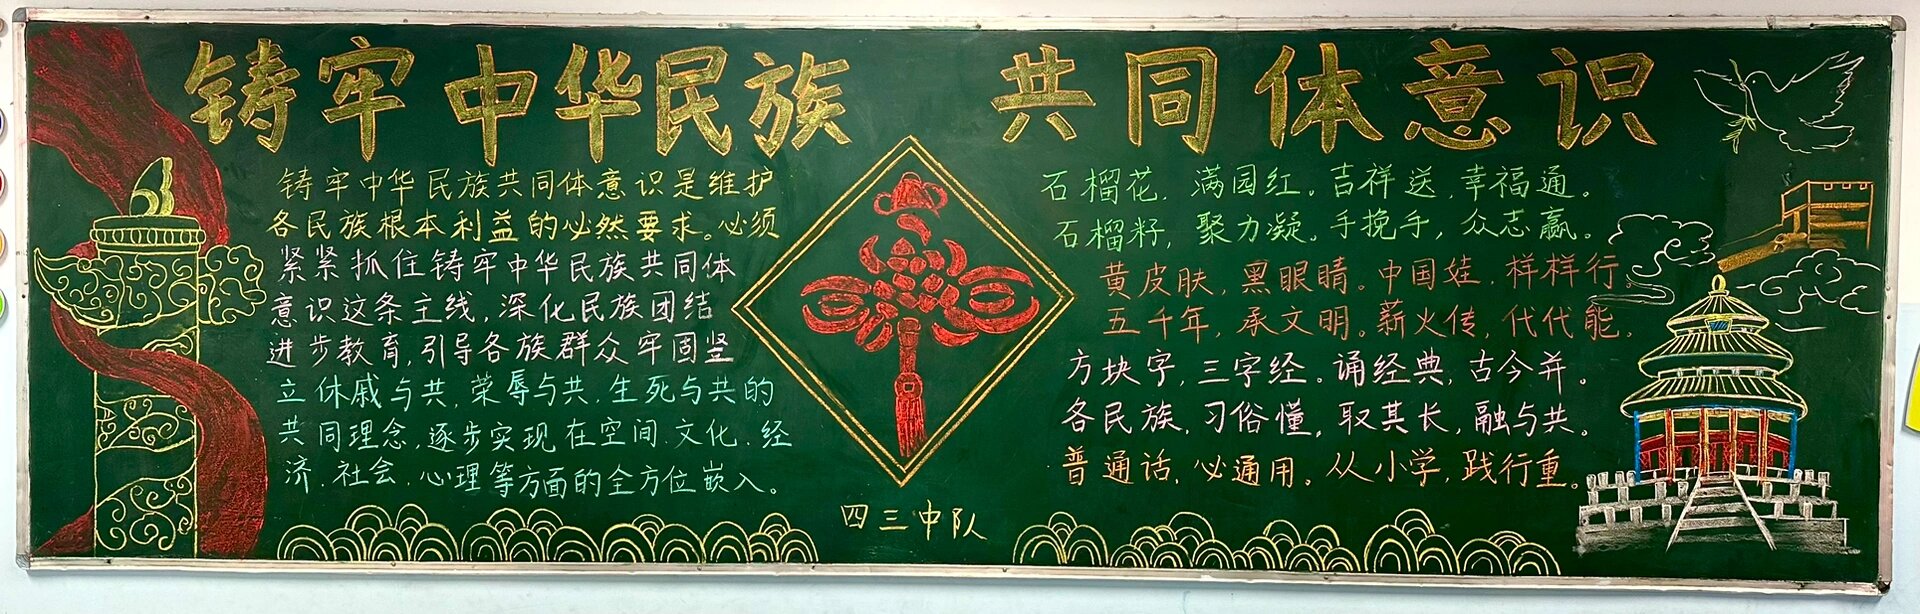 铸牢中华民族 共同体意识
铸牢中华民族共同体意识是维护
各民族根本利益的必然要求。必须
紧紧抓住铸牢中华民族共同体
意识这条主线，深化民族团结
进步教育，引导各族群众牢固竖
立休戚与共、荣辱与共、生死与共的
共同理念，逐步实现在空间、文化、经
济、社会、心理等方面的全方位嵌入。
石榴花，满园红。吉祥送，幸福通。
石榴籽，聚力凝。手挽手，众志赢。
黄皮肤，黑眼睛。中国娃，样样行。
五千年，承文明。薪火传，代代能。
方块字，三字经。诵经典，古今并。
各民族，习俗懂。取其长，融与共。
普通话，必通用。从小学，践行重。
四三中队